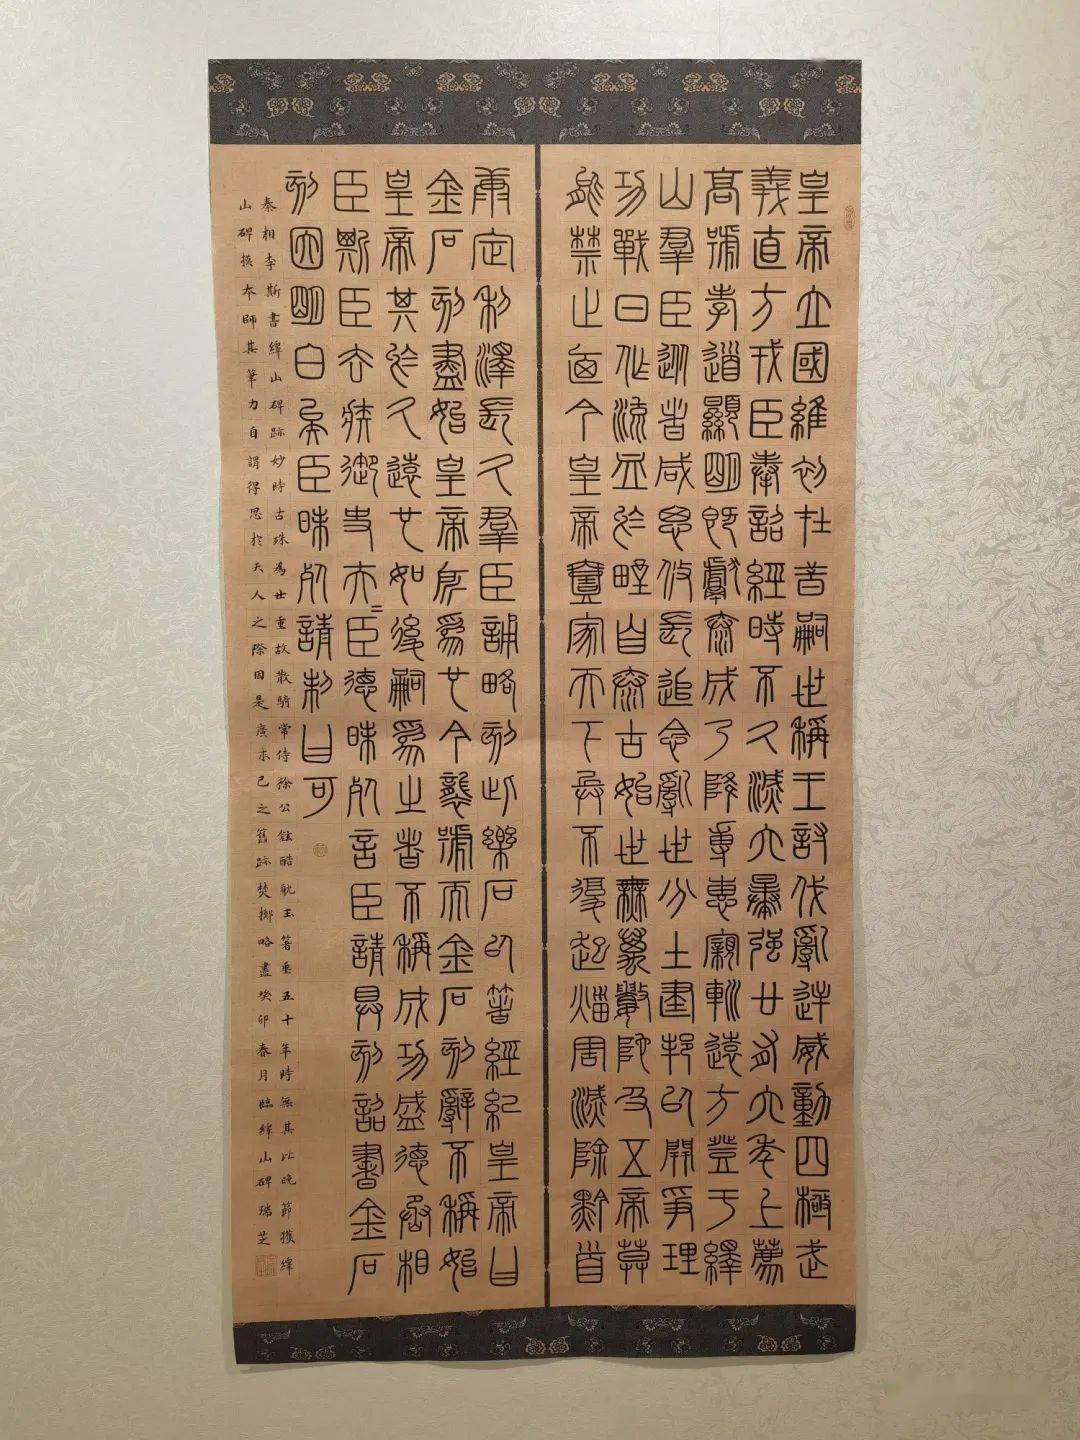 皇帝立國維初在昔嗣世稱王討伐亂逆威動四極武
義直方戎臣奉詔經時不久滅六暴強廿有六年上薦
高號孝道顯明既獻泰成乃降尃惠寴軵遠方登于繹
山羣臣從者咸思攸長追念亂世分土建邦以開爭理
功戰日作流血於野自泰古始世無萬數陀及五帝莫
能禁止廼今皇帝壹家天下兵不復起烖害滅除黔首
康定利澤長久羣臣誦略刻此樂石以箸經紀皇帝曰
金石刻盡始皇帝所為也今襲號而金石刻辭不稱始
皇帝其於久遠也如後嗣為之者不稱成功盛德丞相
臣斯臣去疾御史夫=臣德昧死言臣請具刻詔書金石
刻因明白矣臣昧死請制曰可
秦相李斯書繹山碑跡妙時古殊為世重故散騎常侍徐公鉉酷躭玉箸垂五十年時無其比晚節獲繹
山碑摸本師其筆力自謂得思於天人之際因是廣求己之舊跡焚擲略盡癸卯春月臨繹山碑瑞芝